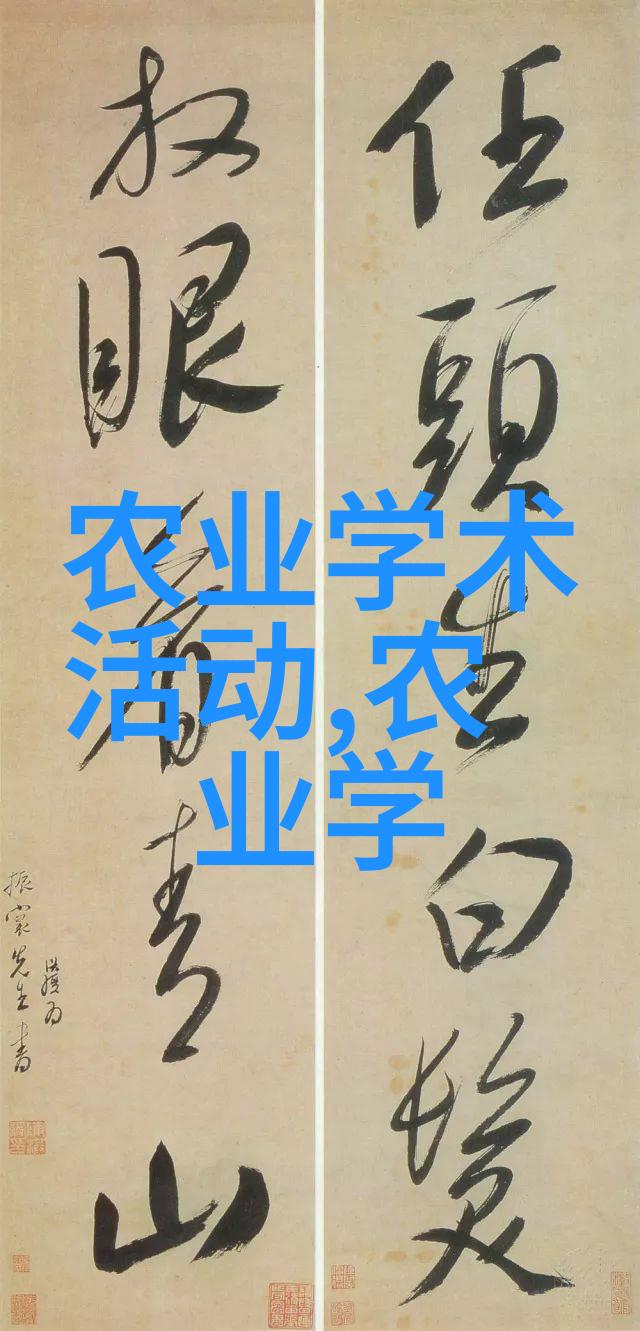 任頭生白髮
放眼看青山
先生書
农业学术
活动,农
业学